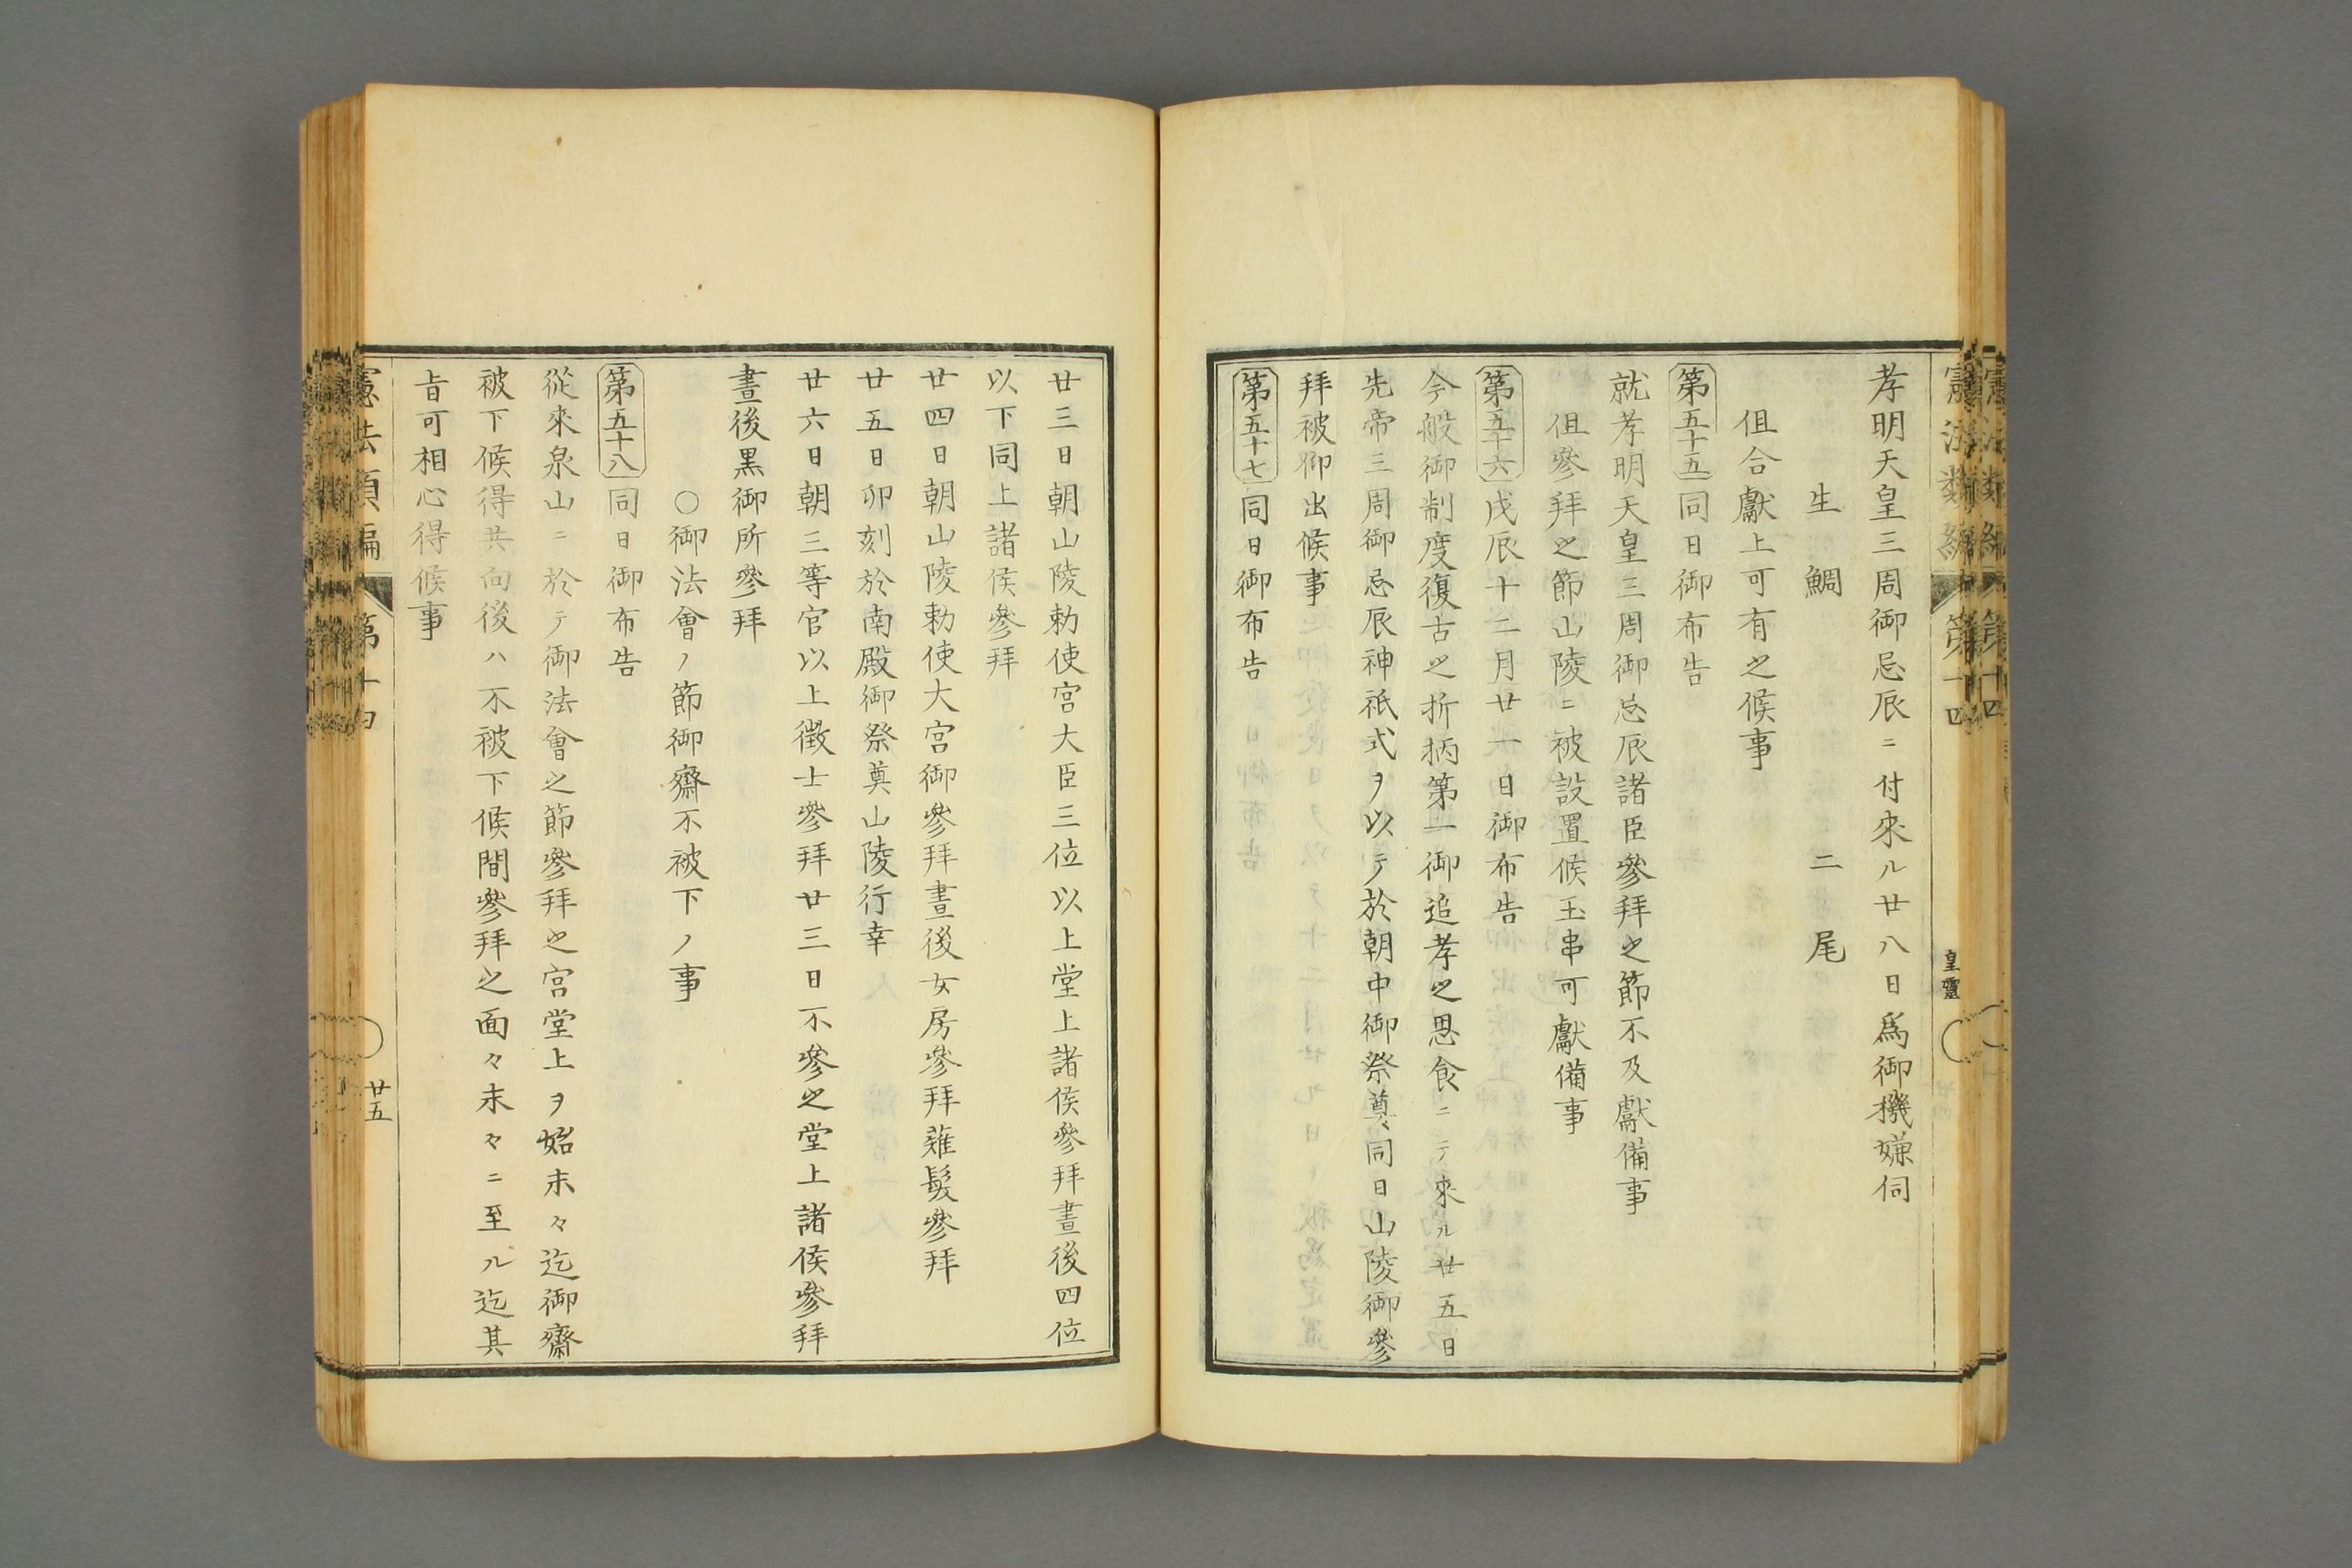 憲法類編 第十四 皇靈
孝明天皇三周御忌辰ニ付來ル廿八日爲御機嫌伺
生鯛 二尾
但合獻上可有之候事
第五十五 同日御布告
就孝明天皇三周御忌辰諸臣參拜之節不及獻備事
但參拜之節山陵ニ被設置候玉串可獻備事
第五十六 戊辰十二月廿一日御布告
今般御制度復古之折柄第一御追孝之思食ニテ來ル廿五日
先帝三周御忌辰神祇式ヲ以テ於朝中御祭奠同日山陵御參
拜被仰出候事
第五十七 同日御布告
廿三日朝山陵勅使宮大臣三位以上堂上諸侯參拜晝後四位
以下同上諸侯參拜
廿四日朝山陵勅使大宮御參拜晝後女房參拜薙髮參拜
廿五日卯刻於南殿御祭奠山陵行幸
廿六日朝三等官以上徴士參拜廿三日不參之堂上諸侯參拜
晝後黒御所參拜
○御法會ノ節御齋不被下ノ事
第五十八 同日御布告
從來泉山ニ於テ御法會之節參拜之宮堂上ヲ始末々迄御齋
被下候得共向後ハ不被下候間參拜之面々末々ニ至ル迄其
旨可相心得候事
憲法類編 第十四 廿五